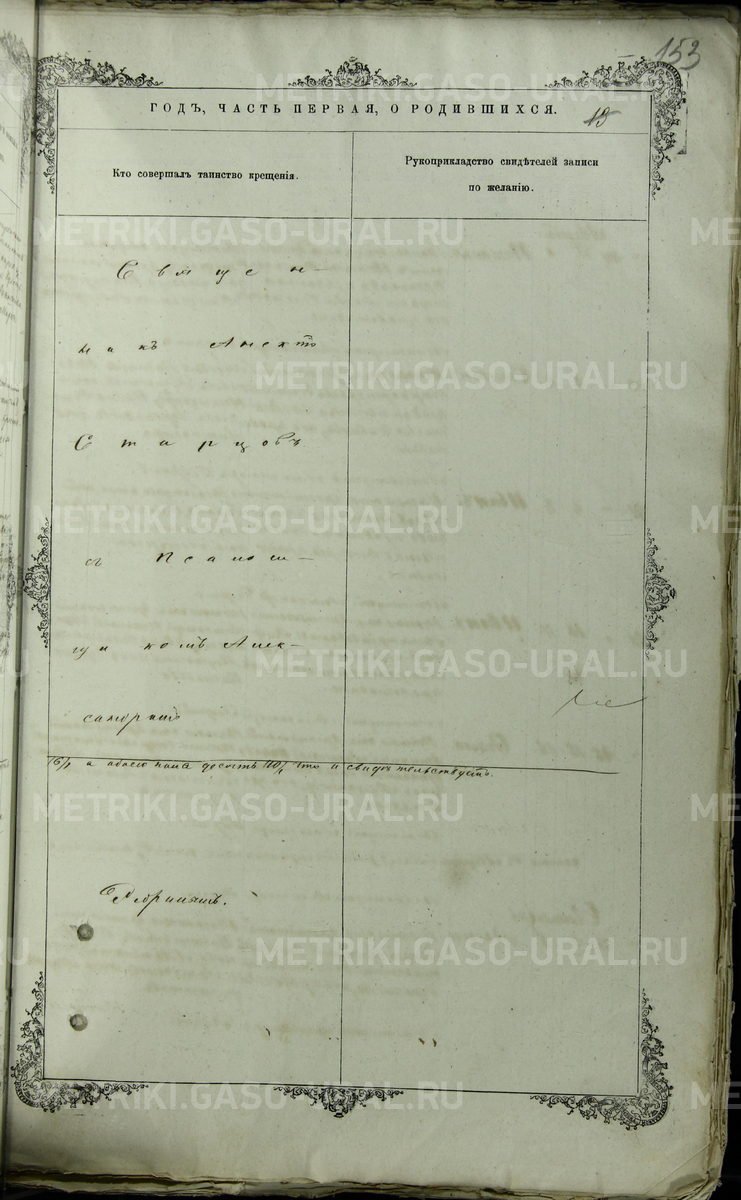 153
ГОДЪ, ЧАСТЬ ПЕРВАЯ, О РОДИВШИХСЯ.
19
Кто совершалъ таинство крещенія.
Рукоприкладство свидѣтелей записи
по желанію.
Священ-
никъ
Старцовъ
съ Псалом-
щикомъ Алек-
сандромъ
и свидѣтельствуетъ.
METRIKI.GASO-URAL.RU